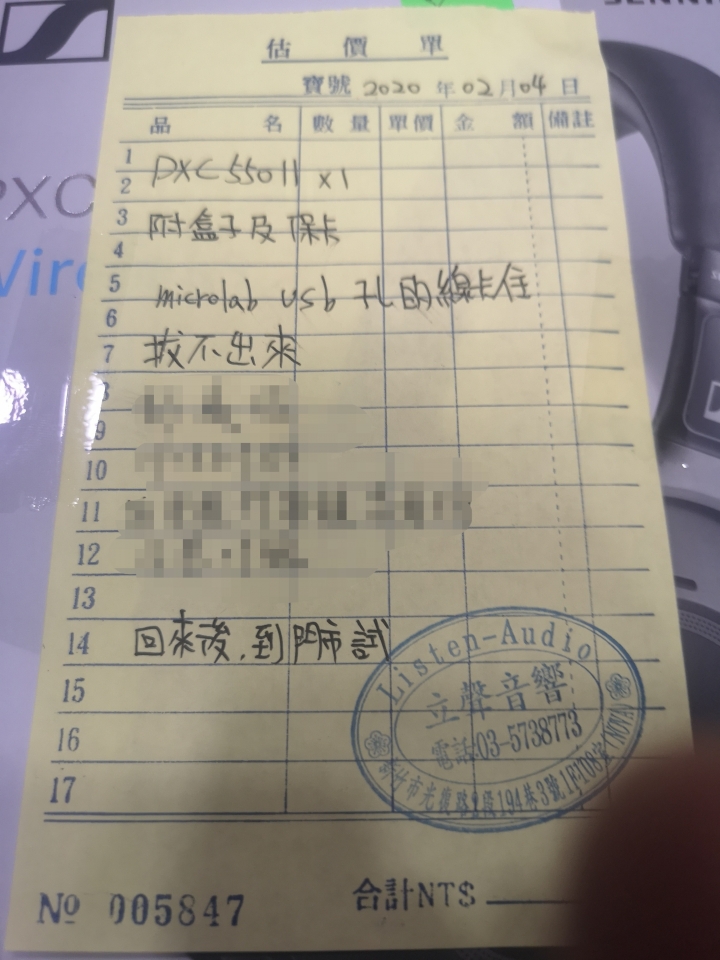 SENN
PXC
Wire
估價單
寶號 2020 年 02 月 04 日
品名 數量 單價 金額 備註
1
2 PXC 550II x1
3 附盒子及保卡
4
5 microlab usb 孔的線卡住
6
7 拔不出來
9
10
11
12
13
14 回來後,到門市試
15
16
17
Listen-Audio
立聲音響
電話:03-5738773
新竹市光復路2段194巷3號1F108室(NOVA)
№ 005847
合計NT$